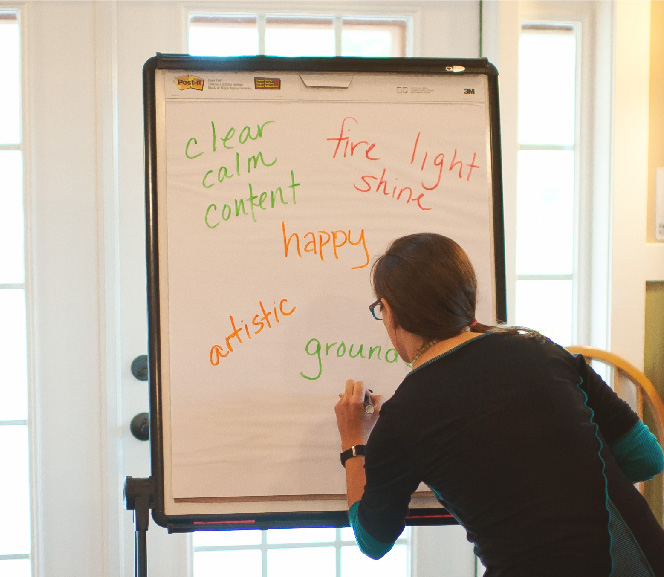 Post-it
3M
clear
calm
content
fire light
shine
happy
artistic
ground